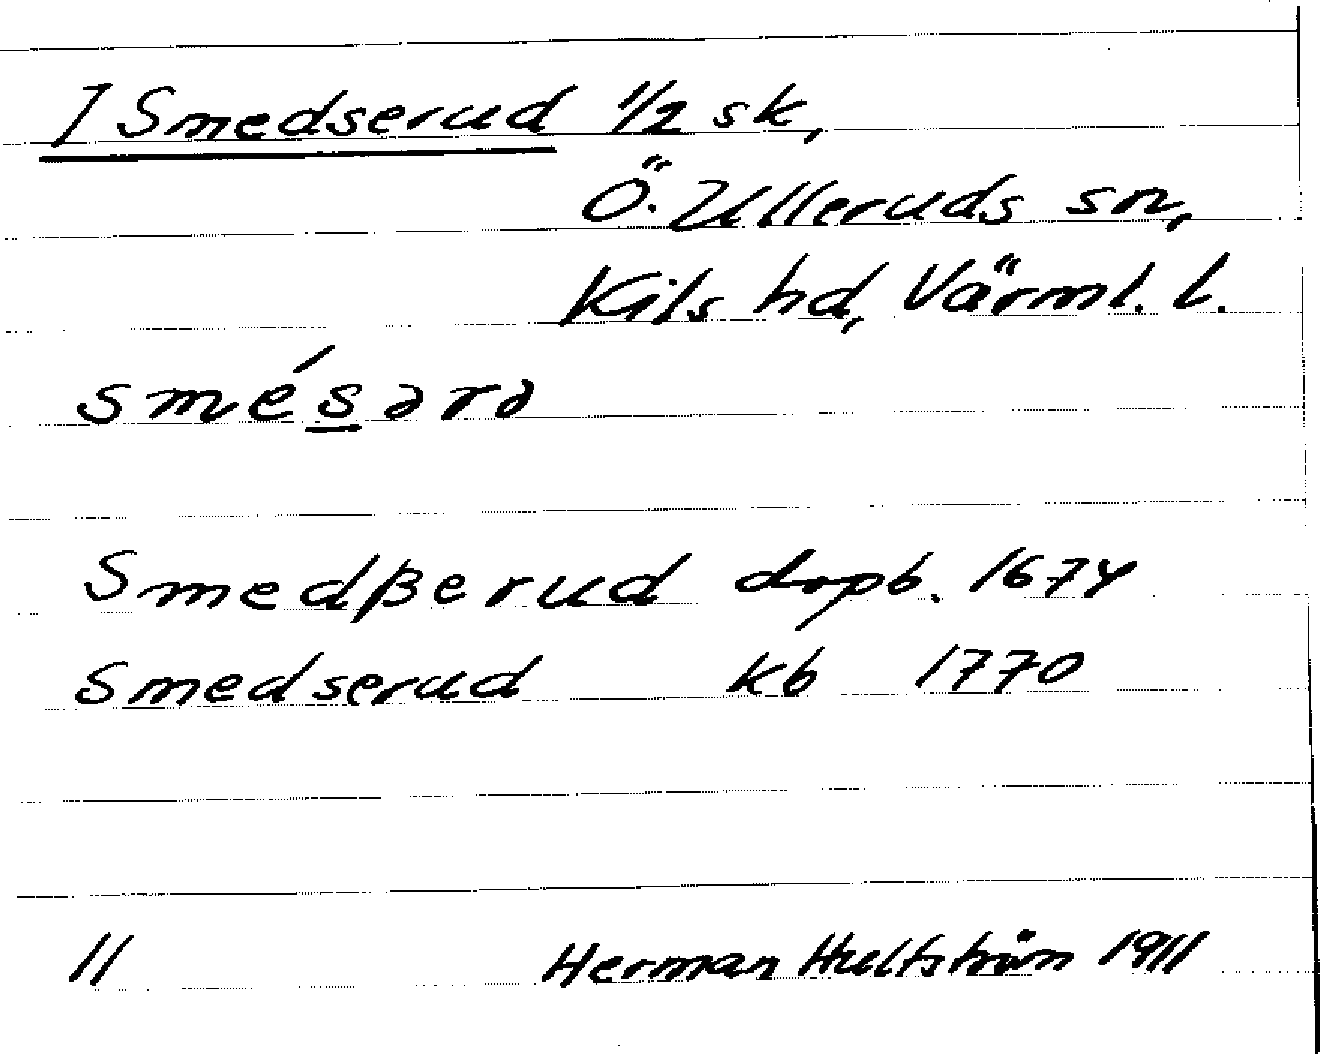 I Smedserud 1/2 sk,
Ö. Ulleruds sn,
Kils hd, Värml. l.
smésərə
Smedßerud dopb. 1674
Smedserud kb 1770
11 Herman Hultström 1911